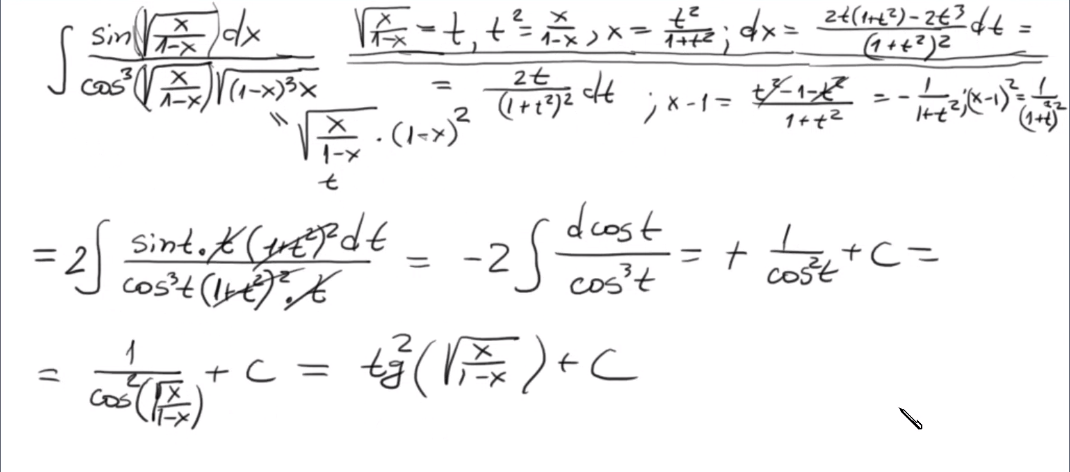 ∫ sin(√(x/(1-x)))dx / (cos³(√(x/(1-x)))√((1-x)³x)) √(x/(1-x)) = t, t² = x/(1-x), x = t²/(1+t²); dx = (2t(1+t²)-2t³)/(1+t²)² dt =
= 2t/(1+t²)² dt ; x-1 = (t²-1-t²)/(1+t²) = -1/(1+t²); (x-1)² = 1/(1+t²)²
" √(x/(1-x)) · (1-x)²
t
= 2∫ (sint·t(1+t²)²dt)/(cos³t(1+t²)²·t) = -2∫ dcost/cos³t = + 1/cos²t + C =
= 1/cos²(√(x/(1-x))) + C = tg²(√(x/(1-x))) + C